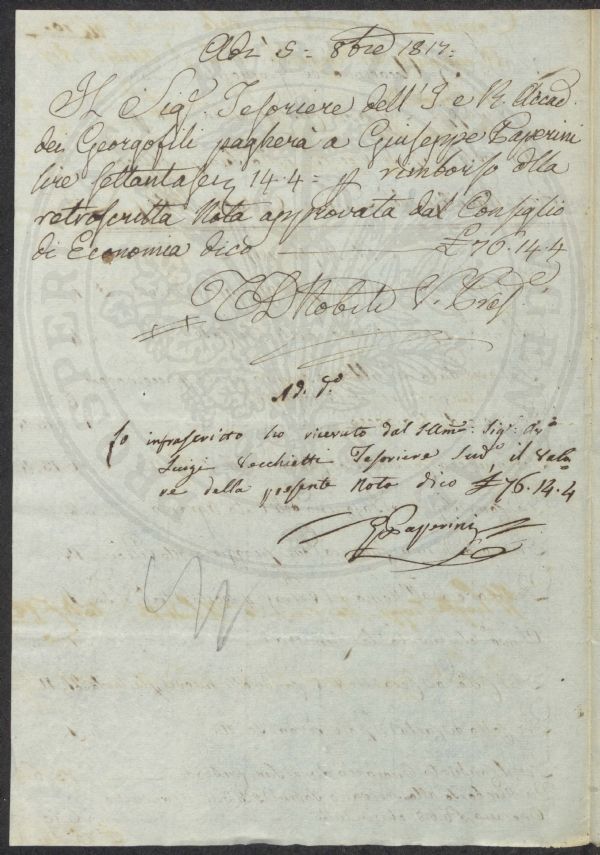 Adi 5. 8bre 1817.
Il Sigr. Tesoriere dell' I. e R. Accad.
dei Georgofili pagherà a Giuseppe Paperini
lire settantasei 14.4 = p rimborso della
retroscritta Nota approvata dal Consiglio
di Economia dico £ 76.14.4
Nobili V. Pres
Ad. do.
Io infrascritto ho ricevuto dal Sigr.
Luigi Vecchietti Tesoriere sudo. il valo=
re della presente Nota dico £ 76.14.4
G Paperini